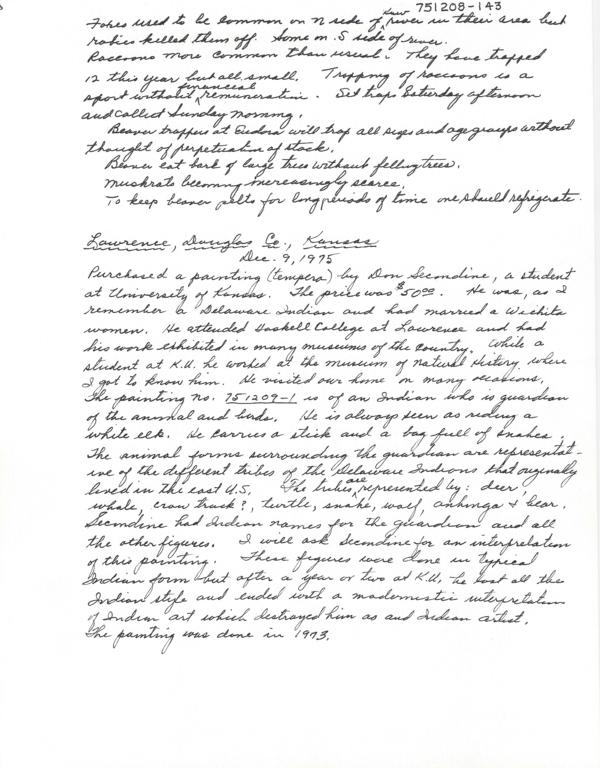 751208-143
Foxes used to be common on N side of Kaw river in their area but
rabies killed them off. Some on S side of river.
Raccoons more common than usual. They have trapped
12 this year but all small. Trapping of raccoons is a
sport without financial remuneration. Set traps Saturday afternoon
and collect Sunday morning.
Beaver trappers at Eudora will trap all sizes and age groups without
thought of perpetuation of stock.
Beaver eat bark of large trees without felling trees.
Muskrats becoming increasingly scarce.
To keep beaver pelts for long periods of time one should refrigerate.
Lawrence, Douglas Co., Kansas
Dec. 9, 1975
Purchased a painting (tempera) by Don Secondine, a student
at University of Kansas. The price was $50.00. He was, as I
remember a Delaware Indian and had married a Wichita
women. He attended Haskell College at Lawrence and had
his work exhibited in many museums of the country. While a
student at K.U. he worked at the museum of Natural History where
I got to know him. He visited our home on many occasions.
The painting no. 751209-1 is of an Indian who is guardian
of the animal and birds. He is always seen as riding a
white elk. He carries a stick and a bag full of snakes.
The animal forms surrounding the guardian are representat-
ive of the different tribes of the Delaware Indians that originally
lived in the east U.S. The tribes are represented by: deer,
whale, crow track?, turtle, snake, wolf, anhinga & bear.
Secondine had Indian names for the guardian and all
the other figures. I will ask Secondine for an interpretation
of this painting. These figures were done in typical
Indian form but after a year or two at K.U. he lost all the
Indian style and ended with a modernistic interpretation
of Indian art which destroyed him as and Indian artist.
The painting was done in 1973.